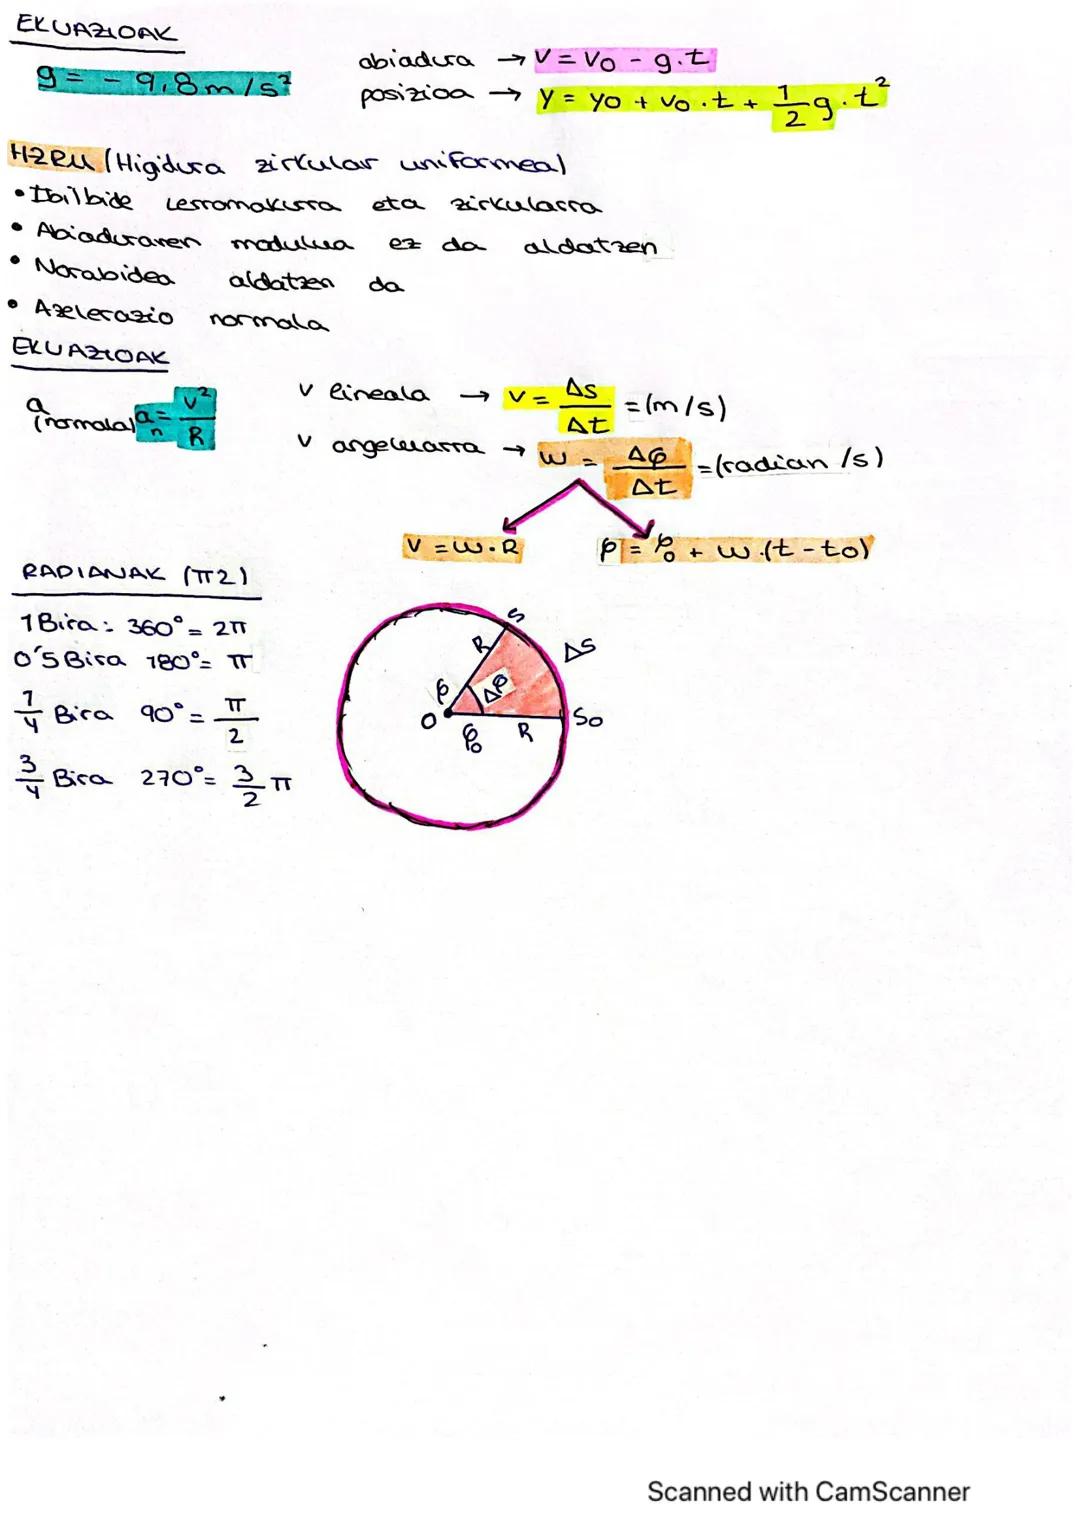 EKUAZIOAK
g = - 9,8 m/s²
abiadura → V = V₀ - g.t
posizioa → y = y₀ + v₀.t + 1/2 g.t²
HZRU (Higidura zirkular uniformea)
• Ibilbide lerromakurra eta zirkularra
• Abiaduraren modulua ez da aldatzen
• Norabidea aldatzen da
• Azelerazio normala
EKUAZIOAK
a (normala) aₙ = v²/R
v lineala → v = Δs/Δt = (m/s)
v angeluarra → w = Δφ/Δt = (radian/s)
v = w.R
φ = φ₀ + w.(t - t₀)
RADIANAK (π2)
1 Bira: 360° = 2π
0'5 Bira 180° = π
1/4 Bira 90° = π/2
3/4 Bira 270° = 3/2 π
S
R
ΔS
φ
Δφ
O
S₀
φ₀
R
Scanned with CamScanner